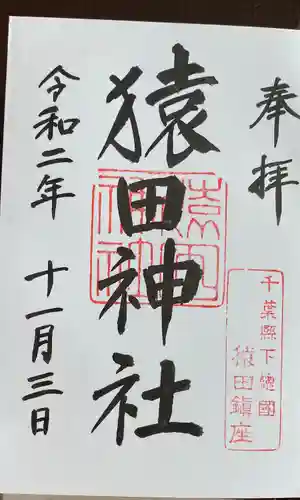 奉拝
千葉縣下總國
猿田鎮座
猿田神社
令和二年 十一月三日